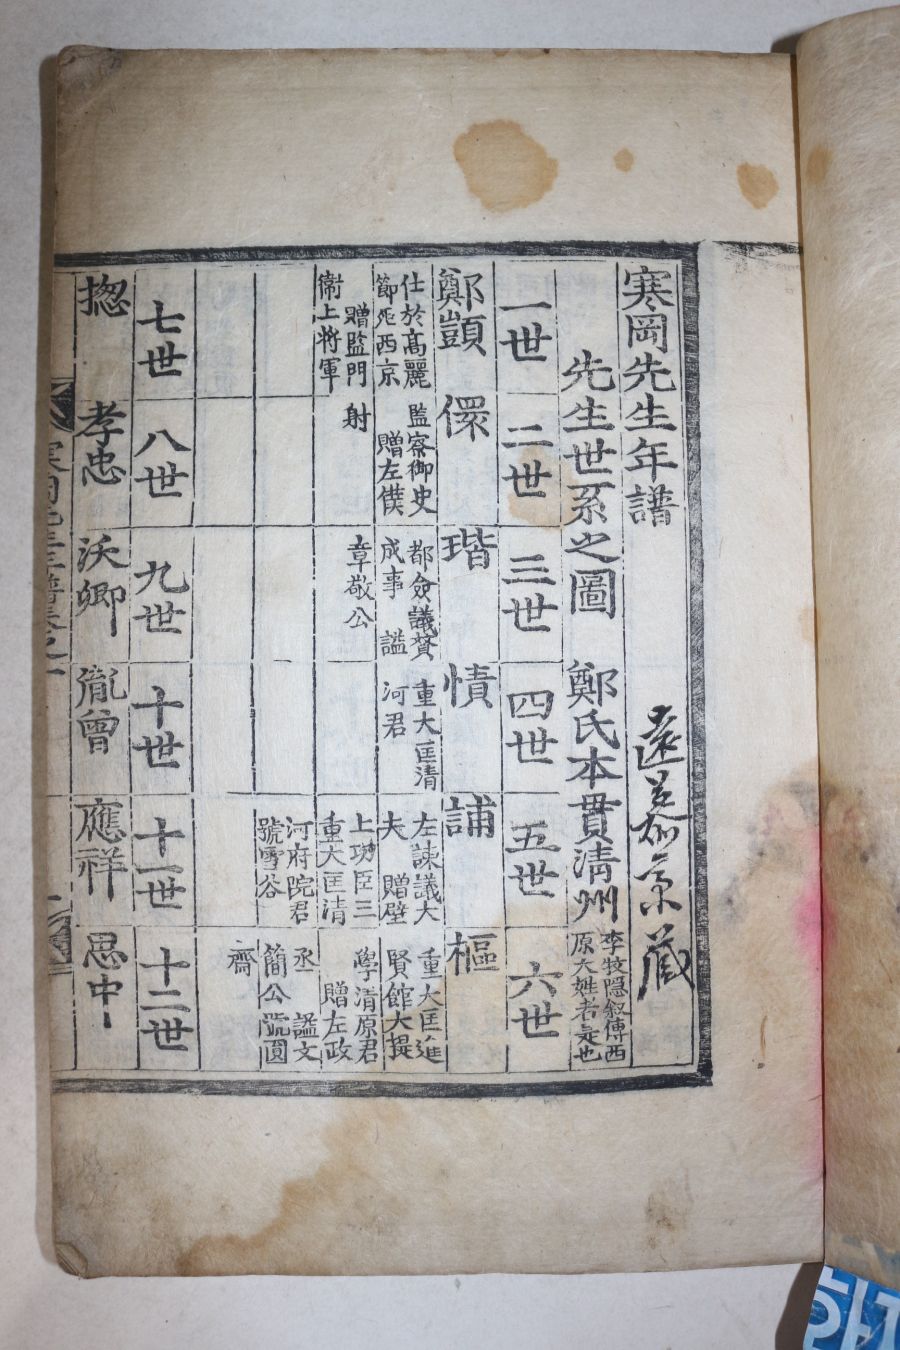 寒岡先生年譜
先生世系之圖 鄭氏本貫淸州 李牧隱叙傳西原大姓者是也
一世 二世 三世 四世 五世 六世
鄭顗 儇 瑎 𢢼 誧 樞
仕於高麗節死西京 贈監門衛上將軍
監察御史 贈左僕射
都僉議賛成事 諡章敬公
重大匡清河君
左諫議大夫 贈壁上功臣三重大匡清河府院君 號雪谷
重大匡進賢館大提學清原君 贈左政丞 諡文簡公號圓齋
七世 八世 九世 十世 十一世 十二世
摠 孝忠 沃卿 胤曾 應祥 思中